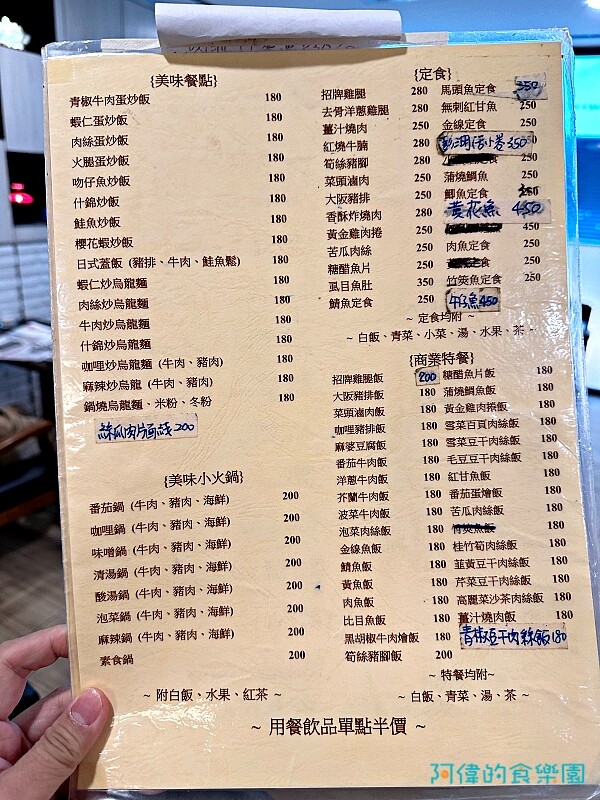 {美味餐點}
青椒牛肉蛋炒飯 180
蝦仁蛋炒飯 180
肉絲蛋炒飯 180
火腿蛋炒飯 180
吻仔魚炒飯 180
什錦炒飯 180
鮭魚炒飯 180
櫻花蝦炒飯 180
日式蓋飯 (豬排、牛肉、鮭魚鬆) 180
蝦仁炒烏龍麵 180
肉絲炒烏龍麵 180
牛肉炒烏龍麵 180
什錦炒烏龍麵 180
咖哩炒烏龍麵 (牛肉、豬肉) 180
麻辣炒烏龍 (牛肉、豬肉) 180
鍋燒烏龍麵、米粉、冬粉 180
絲瓜肉片麵線200
{美味小火鍋}
番茄鍋 (牛肉、豬肉、海鮮) 200
咖哩鍋 (牛肉、豬肉、海鮮) 200
味噌鍋 (牛肉、豬肉、海鮮) 200
清湯鍋 (牛肉、豬肉、海鮮) 200
酸湯鍋 (牛肉、豬肉、海鮮) 200
泡菜鍋 (牛肉、豬肉、海鮮) 200
麻辣鍋 (牛肉、豬肉、海鮮) 200
素食鍋 200
~ 附白飯、水果、紅茶 ~
{定食}
招牌雞腿 280
去骨洋蔥雞腿 280
薑汁燒肉 250
紅燒牛腩 280
筍絲豬腳 280
菜頭滷肉 250
大阪豬排 250
香酥炸燒肉 280
黃金雞肉捲 250
苦瓜肉絲 250
糖醋魚片 250
虱目魚肚 350
鯖魚定食 250
馬頭魚定食 350
無刺紅甘魚 250
金線定食 250
澎湖活小卷350
蒲燒鯛魚 250
鯽魚定食
黃花魚 450
450
肉魚定食 250
250
竹筴魚定食 250
午魚450
~ 定食均附 ~
~ 白飯、青菜、小菜、湯、水果、茶 ~
{商業特餐}
招牌雞腿飯 200
大阪豬排飯 180
菜頭滷肉飯 180
咖哩豬排飯 180
麻婆豆腐飯 180
番茄牛肉飯 180
洋蔥牛肉飯 180
芥蘭牛肉飯 180
波菜牛肉飯 180
泡菜肉絲飯 180
金線魚飯 180
鯖魚飯 180
黃魚飯 180
肉魚飯 180
比目魚飯 180
黑胡椒牛肉燴飯 180
筍絲豬腳飯 200
糖醋魚片飯 180
蒲燒鯛魚飯 180
黃金雞肉捲飯 180
雪菜百頁肉絲飯 180
雪菜豆干肉絲飯 180
毛豆豆干肉絲飯 180
紅甘魚飯 180
番茄蛋燴飯 180
苦瓜肉絲飯 180
竹筴魚飯 180
桂竹筍肉絲飯 180
韮黃豆干肉絲飯 180
芹菜豆干肉絲飯 180
高麗菜沙茶肉絲飯 180
薑汁燒肉飯 180
青椒豆干肉絲飯180
~ 特餐均附~
~ 白飯、青菜、湯、茶 ~
~ 用餐飲品單點半價 ~
阿偉的食樂園